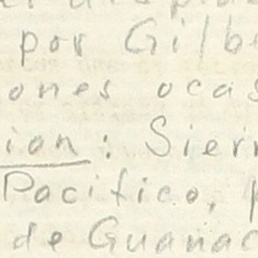 por Gilb
ones ocas
ion: Sierr
Pacifico, p
de Guanac